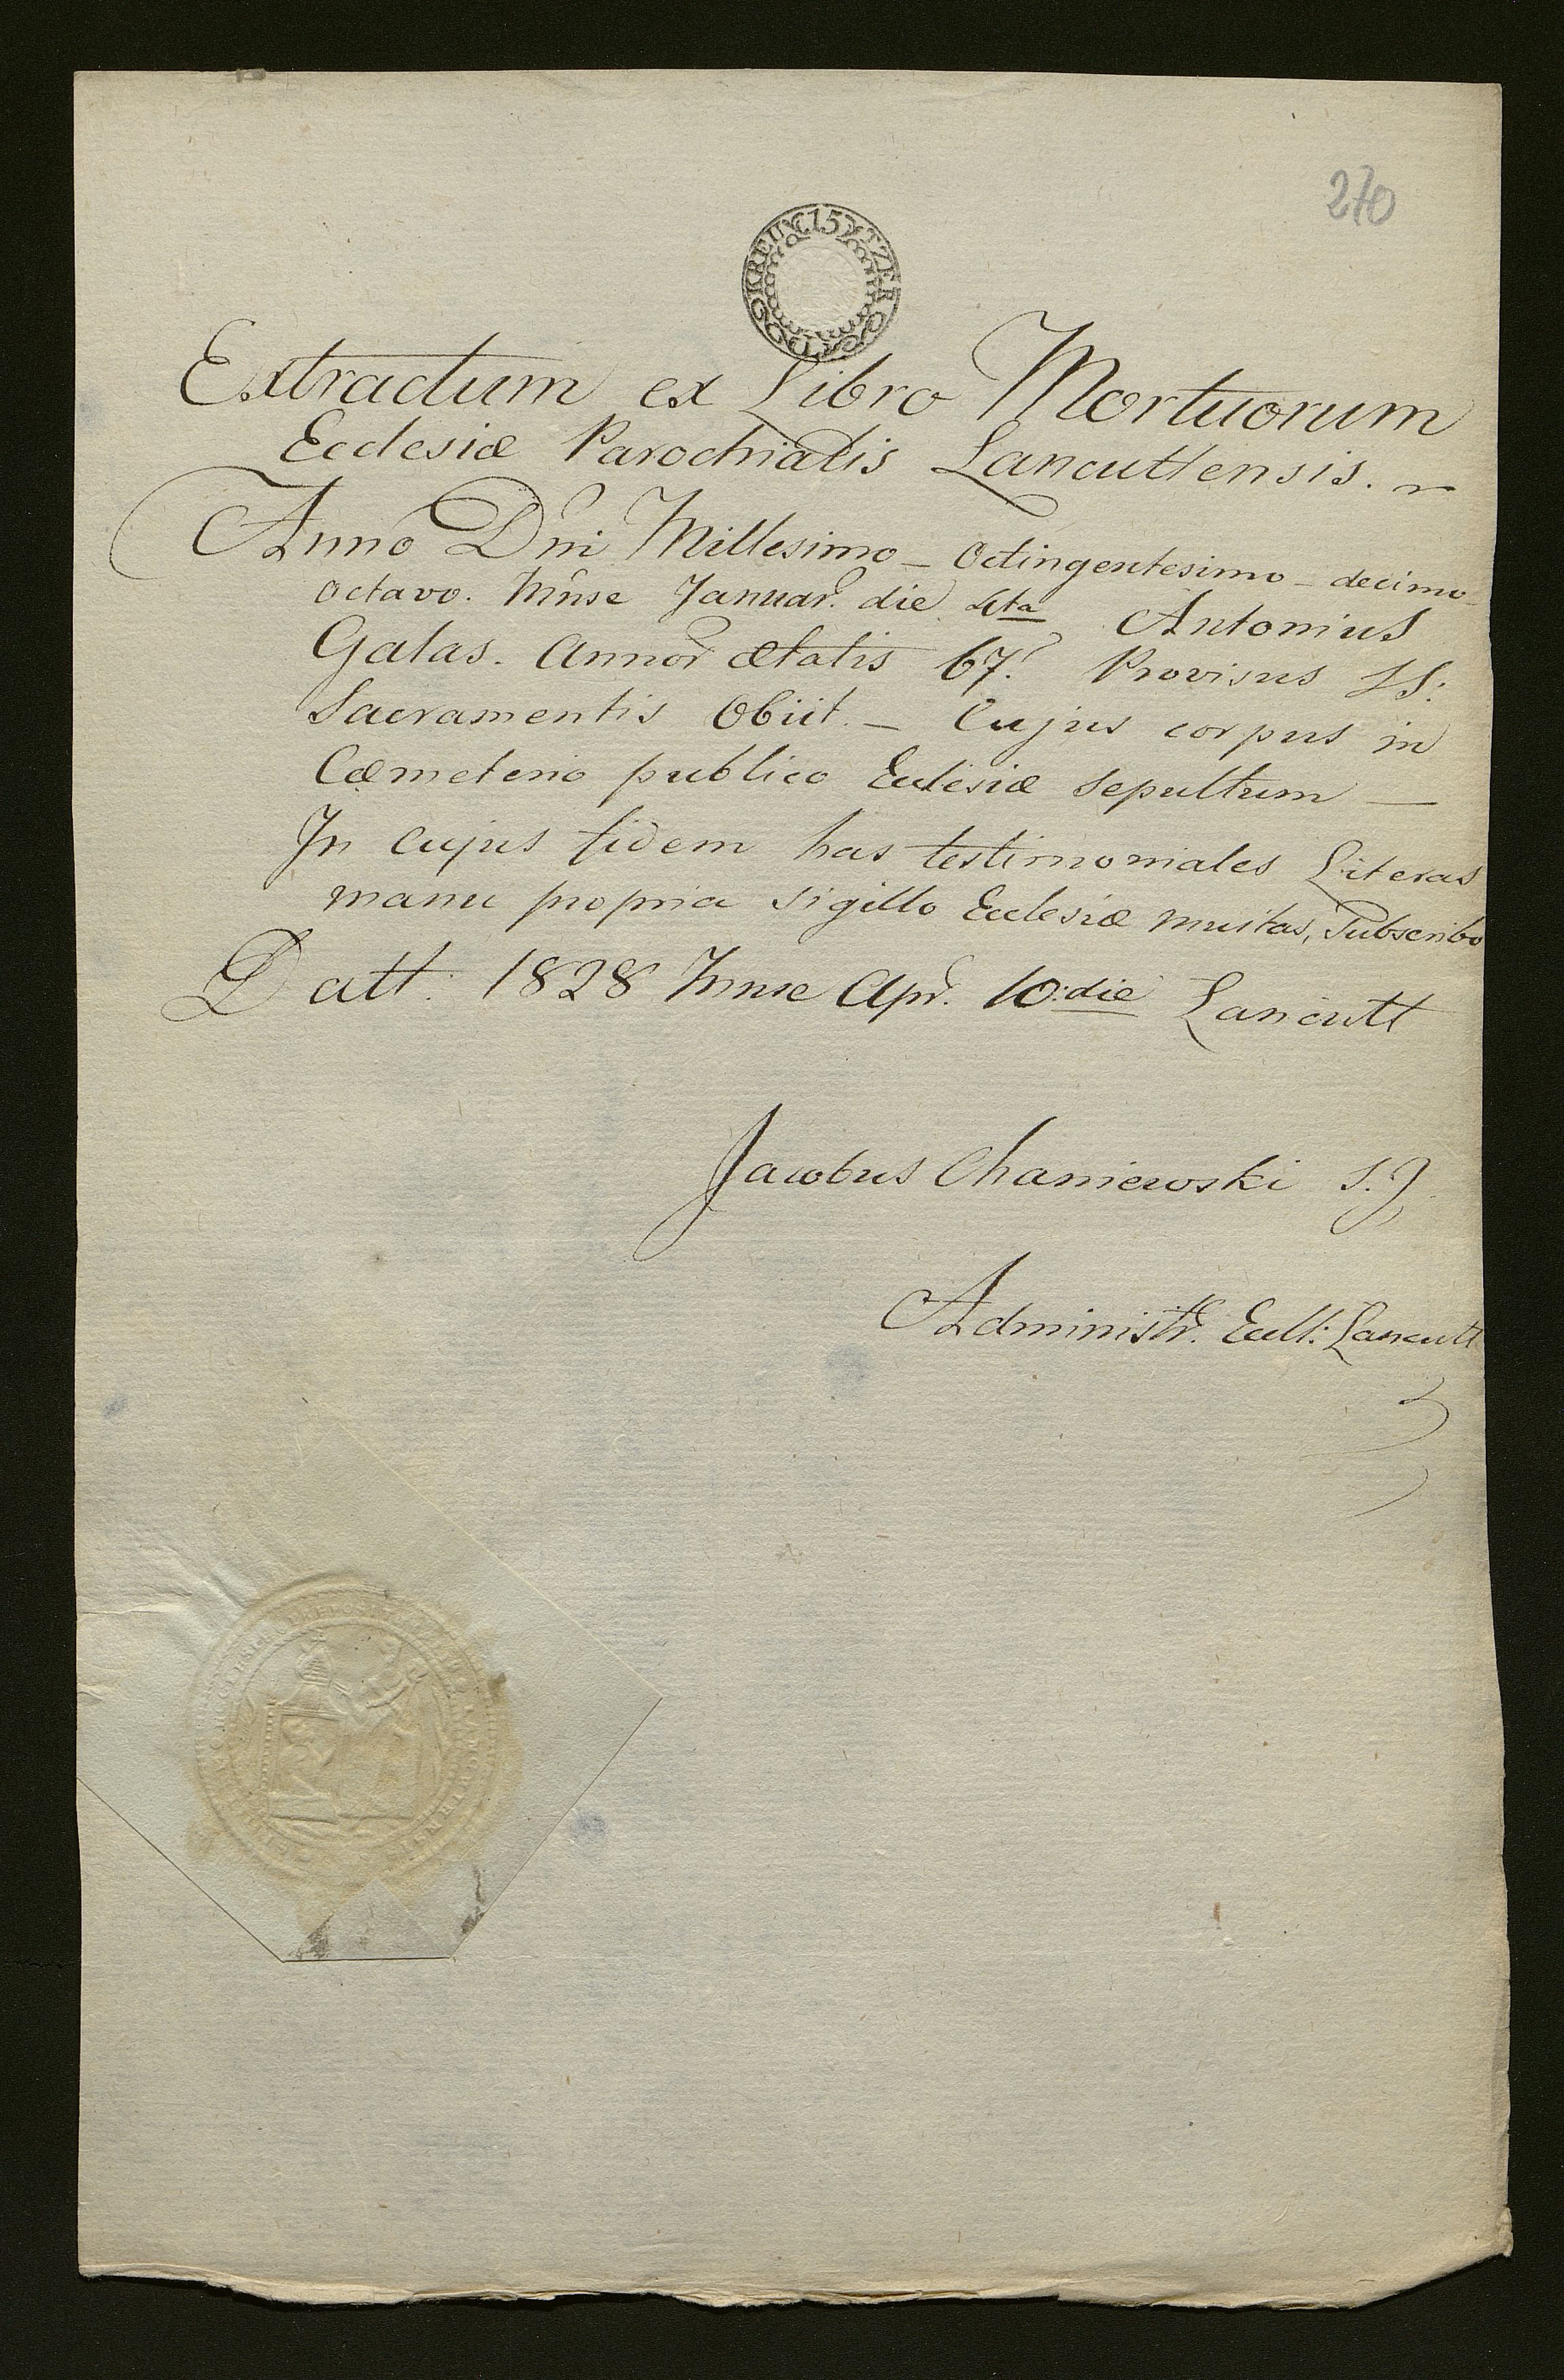 270
15 KREUTZER
Extractum ex Libro Mortuorum
Ecclesiæ Parochialis Lancuttensis.
Anno Dni Millesimo – Octingentesimo – decimo
octavo. Mnse Januar. die 4ta Antonius
Galas. Annor ætatis 67. Provisus SS:
Sacramentis Obiit. – Cujus corpus in
Cœmeterio publico Ecclesiæ sepultum —
In cujus fidem has testimoniales Literas
manu propria sigillo Ecclesiæ munitas, Subscribo
Datt: 1828 Mnse Apr. 10: die Lancutt
Jacobus Chaniewski S.J.
Administr. Eccll: Lancutt